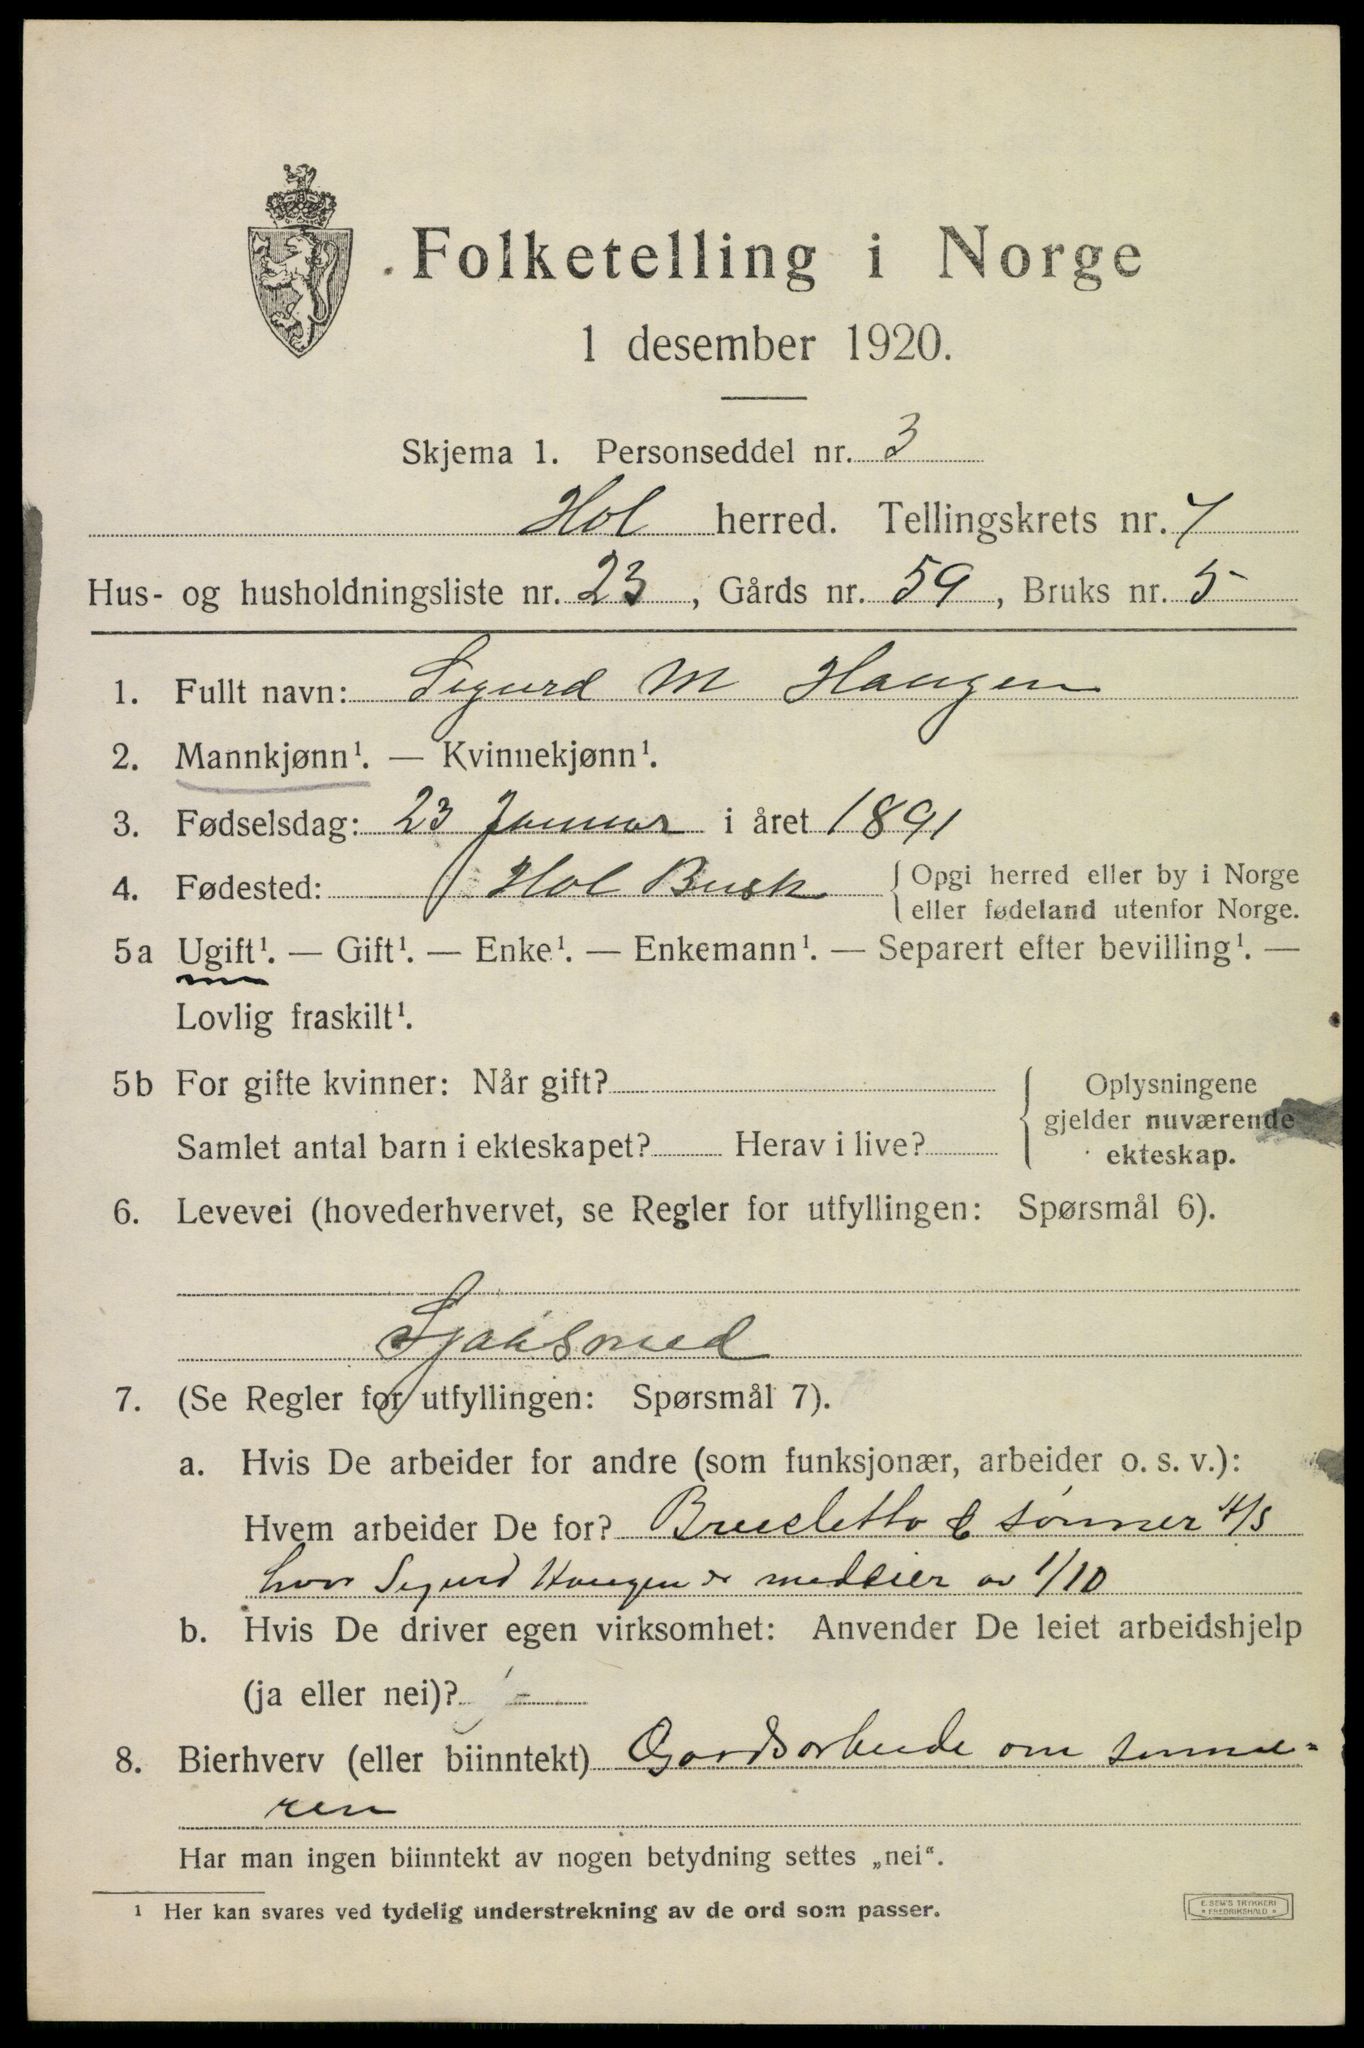 Folketelling i Norge
1 desember 1920.
Skjema 1. Personseddel nr. 3
Hol herred. Tellingskrets nr. 7
Hus- og husholdningsliste nr. 23, Gårds nr. 59, Bruks nr. 5
1. Fullt navn: Sigurd M Haugen
2. Mannkjønn¹. — Kvinnekjønn¹.
3. Fødselsdag: 23 Januar i året 1891
4. Fødested: Hol Busk { Opgi herred eller by i Norge
eller fødeland utenfor Norge.
5a Ugift¹. — Gift¹. — Enke¹. — Enkemann¹. — Separert efter bevilling¹. —
Lovlig fraskilt¹.
5b For gifte kvinner: Når gift? { Oplysningene
gjelder nuværende
Samlet antal barn i ekteskapet? Herav i live? ekteskap.
6. Levevei (hovederhvervet, se Regler for utfyllingen: Spørsmål 6).
7. (Se Regler for utfyllingen: Spørsmål 7).
a. Hvis De arbeider for andre (som funksjonær, arbeider o. s. v.):
Hvem arbeider De for? Brusletto & sønner A/S
hvor Sigurd Haugen er medeier av 1/10
b. Hvis De driver egen virksomhet: Anvender De leiet arbeidshjelp
(ja eller nei)? -
8. Bierhverv (eller biinntekt) Gaardsarbeide om somme-
ren
Har man ingen biinntekt av nogen betydning settes „nei".
¹ Her kan svares ved tydelig understrekning av de ord som passer.
E. SEM'S TRYKKERI
FREDRIKSHALD